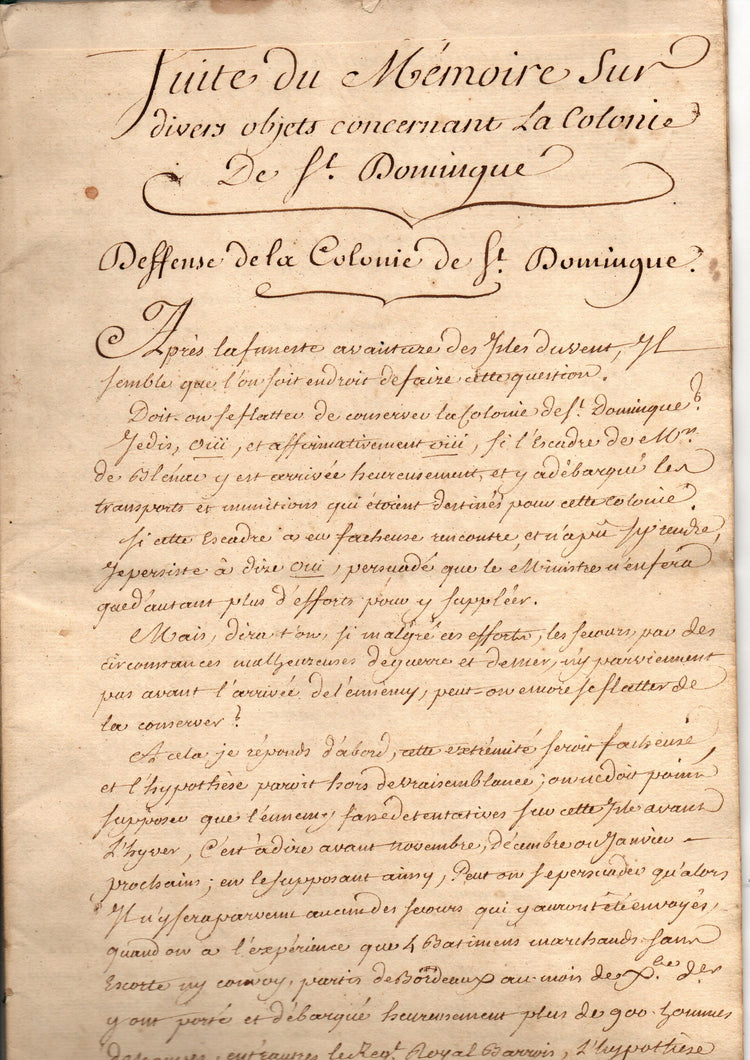 Suite du Mémoire Sur
divers objets concernant La Colonie
De St. Domingue
Deffense de la Colonie de St. Domingue.
Après la funeste avanture des Isles du vent, Il
semble que l'on soit en droit de faire cette question.
Doit-on se flatter de conserver la Colonie de St. Domingue?
Je dis, oüi, et affirmativement oüi, si l'Escadre de Mr.
de Blénac y est arrivée heureusement, et y a débarqué les
transports et munitions qui étoient destinés pour cette colonie.
Si cette Escadre a eu facheuse rencontre, et n'a pû s'y rendre,
Je persiste à dire oui, persuadé que le Ministre n'en fera
que d'autant plus d'efforts pour y suppléer.
Mais, dira t'on, si malgré ces efforts, les secours, par des
circonstances malheureuses de guerre et de mer, n'y parviennent
pas avant l'arrivée de l'ennemy, peut-on encore se flatter de
la conserver?
A cela je réponds d'abord, cette extrémité seroit facheuse,
et l'hypothèse paroit hors de vraisemblance; on ne doit point
supposer que l'ennemy fasse de tentatives sur cette Isle avant
L'hyver, C'est à dire avant novembre, décembre ou Janvier
prochains; en le supposant ainsy, Peut on se persuader qu'alors
Il n'y sera parvenu aucun des secours qui y auront été envoyés,
quand on a l'expérience que 4 Batimens marchands sans
Escorte ny convoy, partis de Bordeaux au mois de Xbre. der
y ont porté et débarqué heureusement plus de 900 hommes
de troupes, entr'autres le Regt. Royal Barrois, L'hypothèse